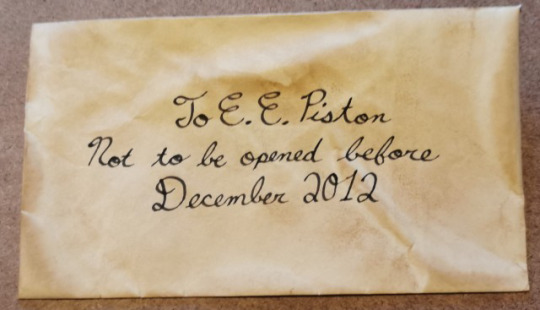 To E. E. Piston
Not to be opened before
December 2012